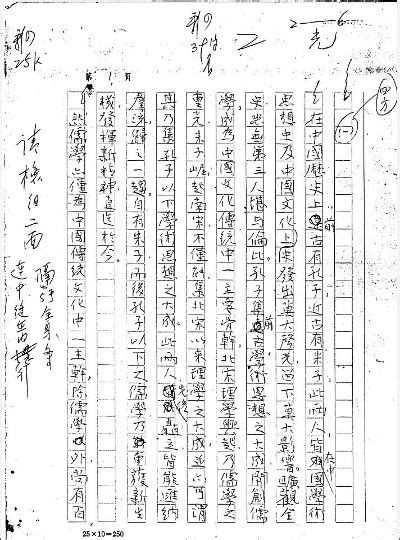 2—6
(一)
在中國歷史上,前古有孔子,近古有朱子,此兩人,皆在中國學術
思想史及中國文化史上發出莫大聲光,留下莫大影響。曠觀全
史,恐無第三人堪與倫比。孔子集前古學術思想之大成,開創儒
學,成為中國文化傳統中一主要骨幹。北宋理學興起,乃儒學之
重光。朱子崛起南宋,不僅能集北宋以來理學之大成,並亦可謂
其乃集孔子以下學術思想之大成。此兩人,先後矗立,皆能匯納
羣流,歸之一趨。自有朱子,而後孔子以下之儒學,乃重獲新生
機,發揮新精神,直迄於今。
然儒學亦僅為中國傳統文化中一主幹,除儒學外,尚有百
第 1 頁
25×10=250